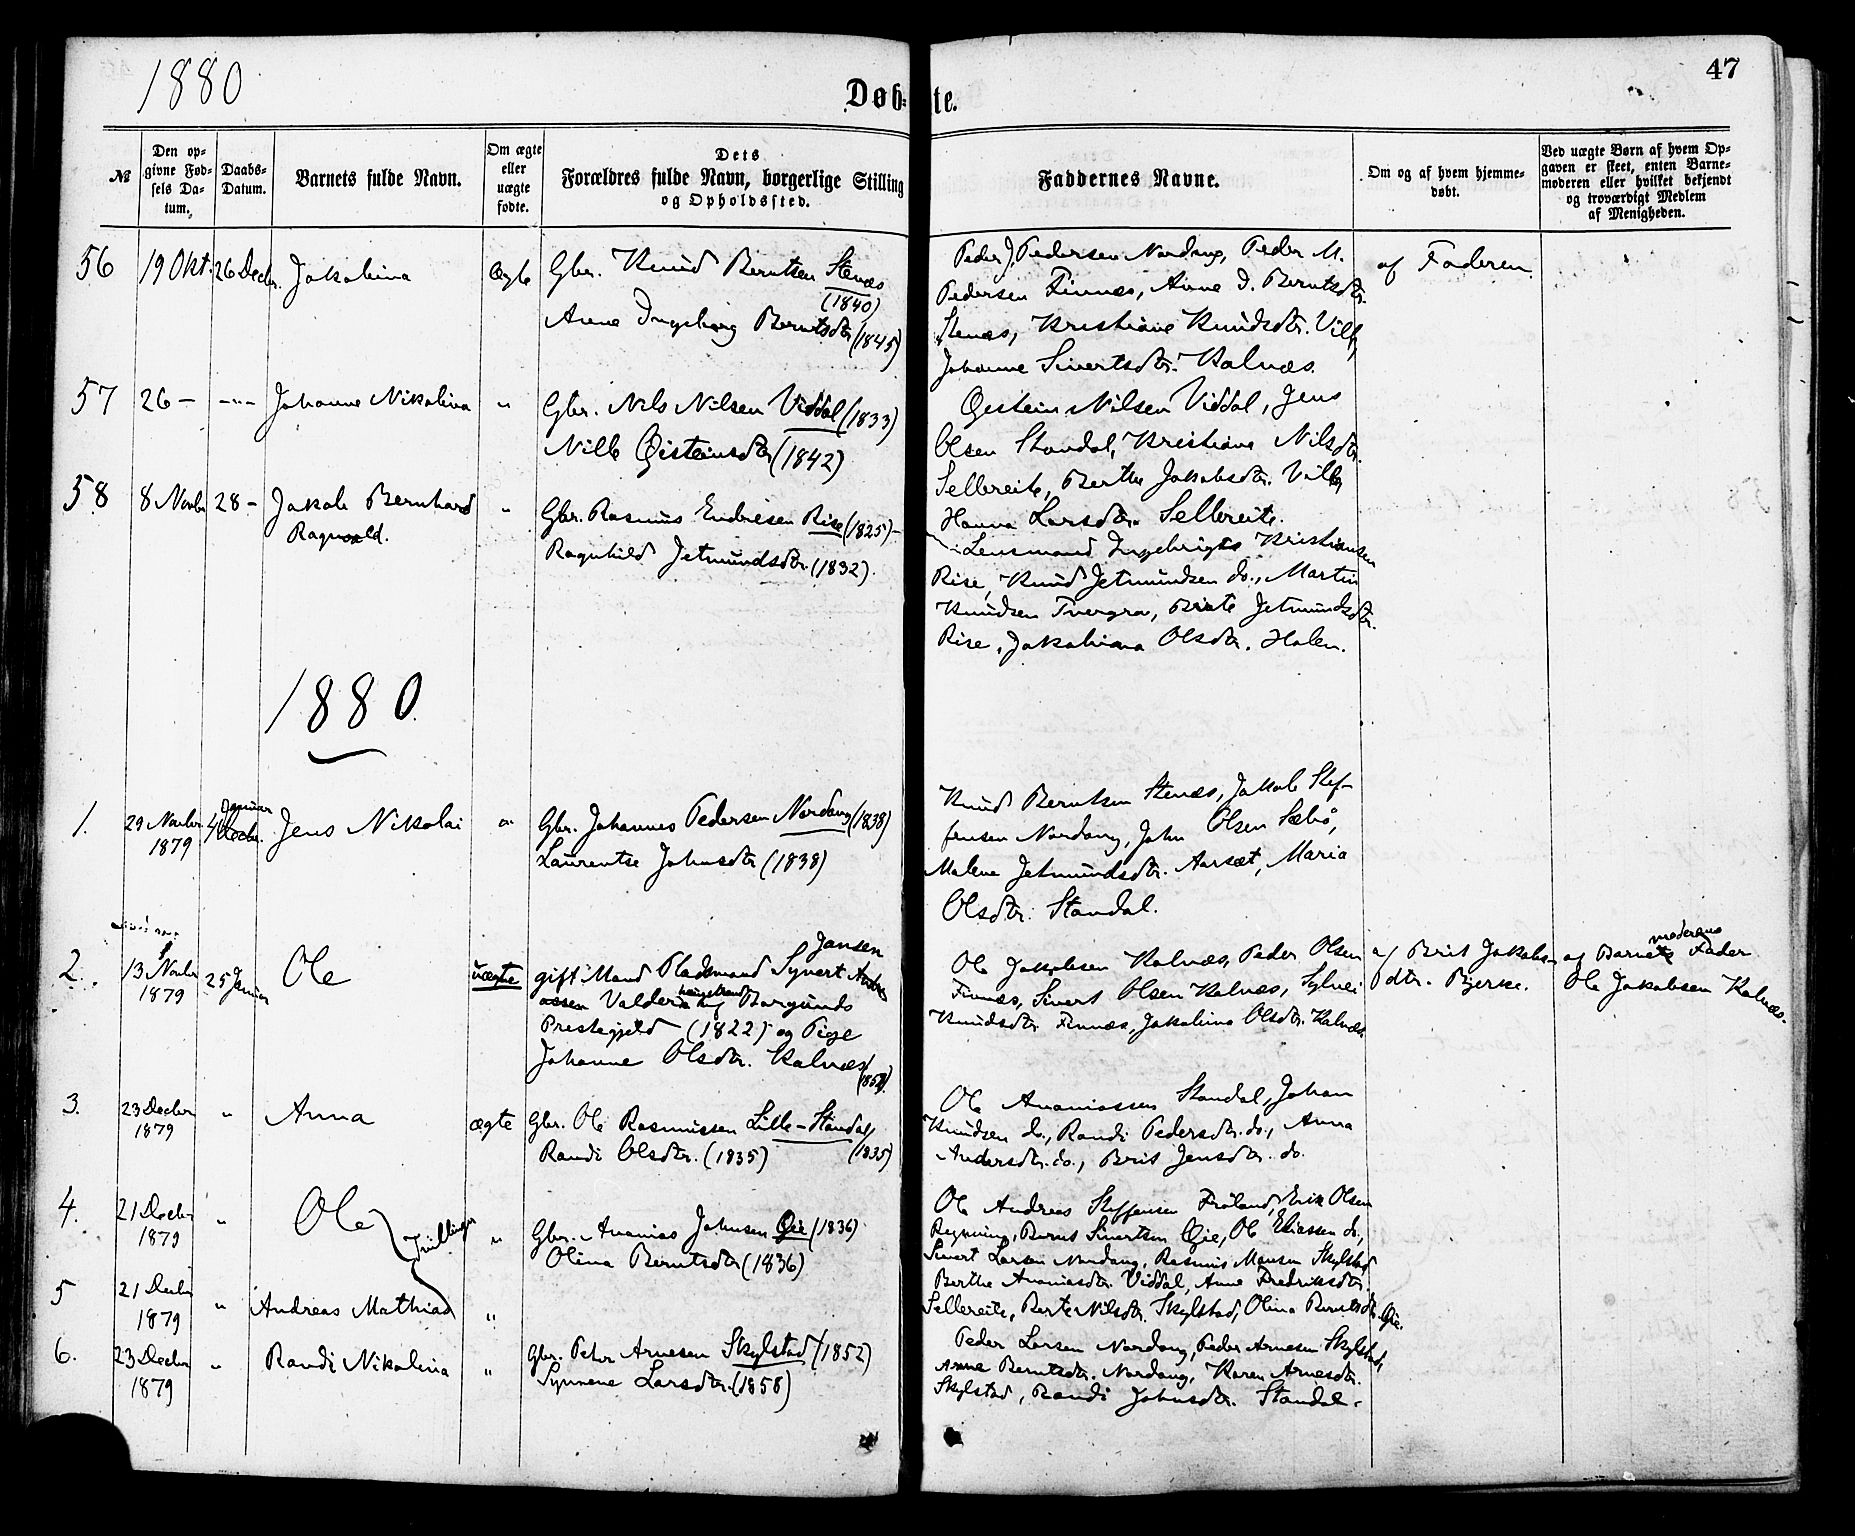 1880
47
Døb-te.
№
Den op-
givne Fød-
sels Da-
tum.
Daabs-
Datum.
Barnets fulde Navn.
Om ægte
eller
uægte
fødte.
Dets
Forældres fulde Navn, borgerlige Stilling
og Opholdssted.
Faddernes Navne.
Om og af hvem hjemme-
døbt.
Ved uægte Børn af hvem Op-
gaven er skeet, enten Barne-
moderen eller hvilket bekjendt
og troværdigt Medlem
af Menigheden.
56
19 Okt.
26 Decbr.
Jakobina
Ægte
Gbr. Knud Berntsen Stenæs
(1840)
Anne Ingeborg Berntsdtr (1845)
Peder J. Pedersen Nordang, Peder M.
Pedersen Finnæs, Anne I. Berntsdtr.
Stenæs, Kristiane Knudsdtr.
Johanne Sivertsdtr. Kalnæs.
af Faderen
57
26 –
–"–
Johanne Nikolina
"
Gbr. Nils Nilsen Viddal (1833)
Nille Øisteinsdtr (1842)
Øistein Nilsen Viddal, Jens
Olsen Standal, Kristiane Nilsdtr.
Sellereite, Berthe Jakobsdtr.
Hanna Larsdtr. Sellereite.
58
8 Novbr
28 –
Jakob Bernhard
Ragnvald.
"
Gbr. Rasmus Endresen Rise (1825) –
Ragnhild Jetmundsdtr. (1832).
Lensmand Ingebrigt Kristiansen
Rise, Knud Jetmundsen do., Martin
Knudsen Tvergrov, Birte Jetmundsdtr.
Rise, Jakobina Olsdtr. Holen.
1880.
1.
29 Novbr
1879
Januar
4 Decbr.
Jens Nikolai
"
Gbr. Johannes Pedersen Nordang (1838)
Laurentse Johnsdtr (1838)
Knud Berntsen Stenæs, Jakob Stef-
fensen Nordang, John Olsen Sæbø,
Malene Jetmundsdtr. Aarsæt, Maria
Olsdtr. Standal.
2.
13 Novbr
1879
25 Januar
Ole
uægte
Jansen
gift Mand Pladsmand Syvert
Borgunds
Prestegjeld (1822) og Pige
Johanne Olsdtr. Kalnæs
Ole Jakobsen Kalnæs, Peder Olsen
Finnæs, Sivert Olsen Kalnæs, Sylvei
Knudsdtr Finnæs, Jakobine Olsdtr. Kalnæs
af Brit Jakobs-
dtr. Bjerke.
moderens
af Barnets Fader
Ole Jakobsen Kalnæs.
3.
23 Decbr
1879
"
Anna
ægte
Gbr. Ole Rasmussen Lille-Standal
(1835)
Randi Olsdtr. (1835)
Ole Ananiassen Standal, Johan
Knudsen do., Randi Pedersdtr. do., Anna
Andersdtr. do., Brit Jensdtr. do.
4.
21 Decbr
1879
"
Ole
Tvillinger
"
Gbr. Ananias Johnsen Øie (1836)
Olina Berntsdtr (1836)
Ole Andreas Steffensen Frøland, Erik Olsen
Bernt Sivertsen Øie, Ole Eliassen do.,
Sivert Larsen Nordang, Rasmus Monsen Skylstad
Berthe Ananiasdtr. Viddal, Anne Fredriksdtr.
Sellereite, Berte Nilsdtr. Skylstad, Olina Berntsdtr. Øie.
5
21 Decbr
1879
"
Andreas Mathias
"
6.
23 Decbr
1879
"
Randi Nikolina
"
Gbr. Peter Arnesen Skylstad (1852)
Synneve Larsdtr. (1858)
Peder Larsen Nordang, Peder Arnesen Skylstad,
Anne Berntsdtr. Nordang, Karen Arnesdtr.
Skylstad, Randi Johnsdtr. Standal.